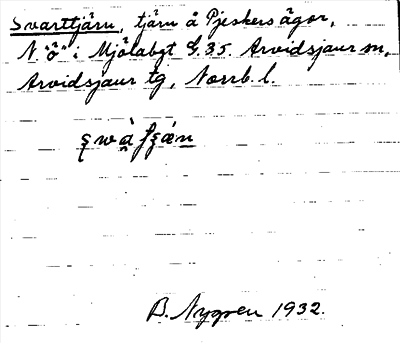 Svarttjärn, tjärn å Pjeskers ägor,
N. "ö" i Mjölabgt G. 35. Arvidsjaur sn,
Arvidsjaur tg, Norrb. l.
B. Nygren 1932.